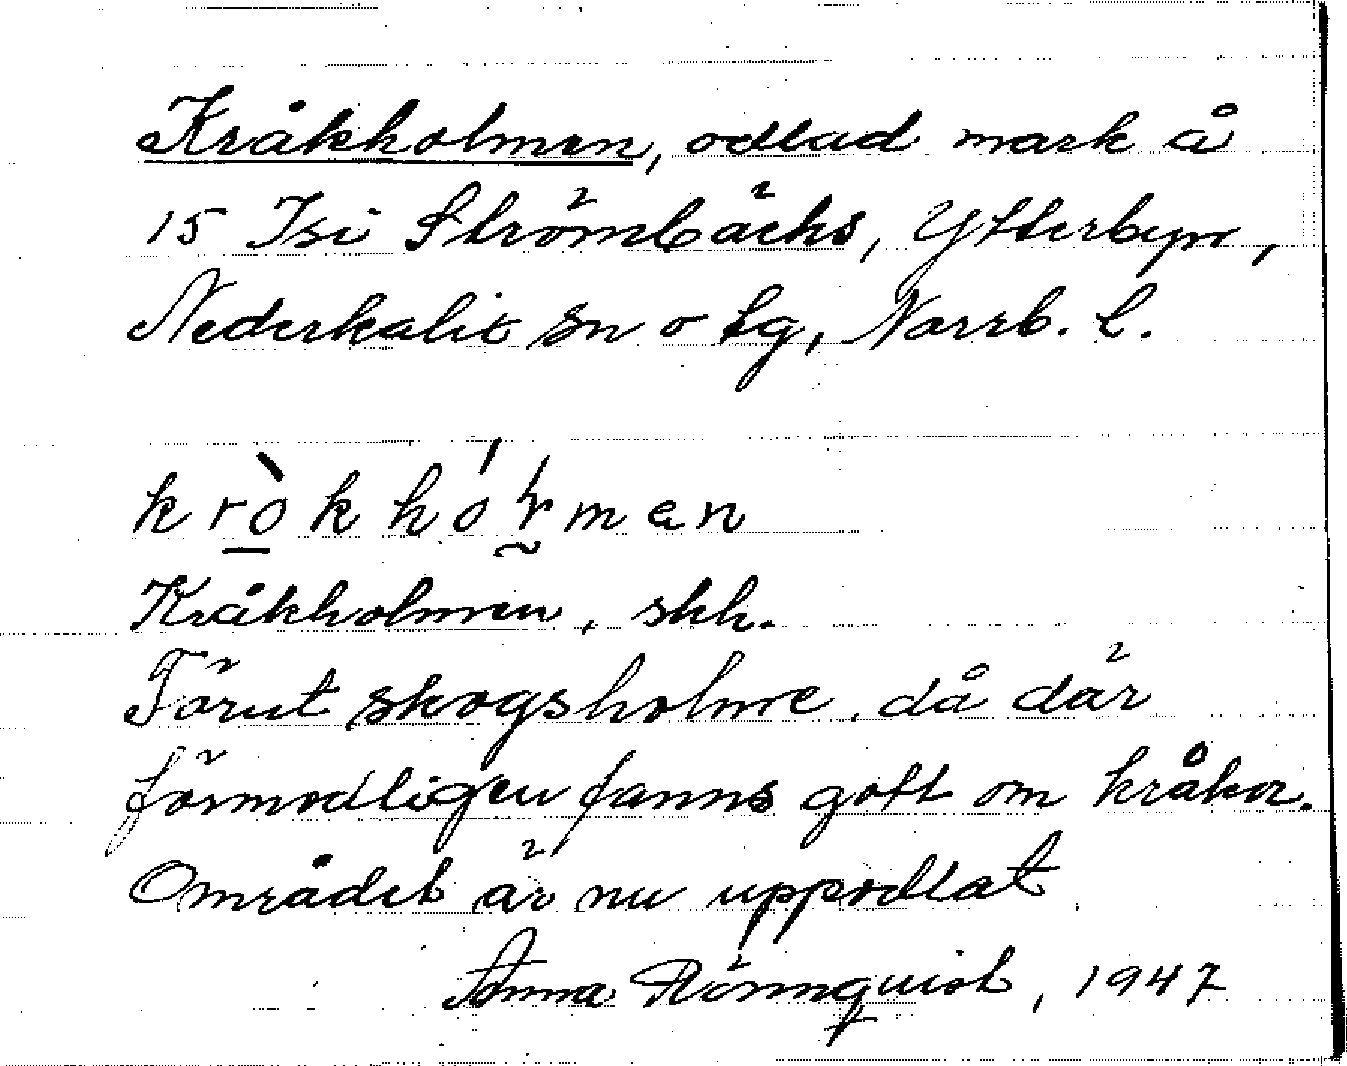 Kråkholmen, odlad mark å
15 Isi Strömbäcks, Ytterbyn,
Nederkalix sn o tg, Norrb. l.
kròkhółmen
Kråkholmen, skh.
Förut skogsholme, då där
förmodligen fanns gott om kråkor.
Området är nu uppodlat
Anna Rönnquist, 1947